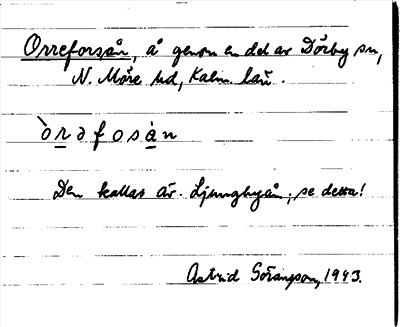 Orreforsån, å genom en del av Dörby sn,
N. Möre hd, Kalm. län.
òrəfosàn
Den kallas äv. Ljungbyån; se detta!
Astrid Göransson, 1943.